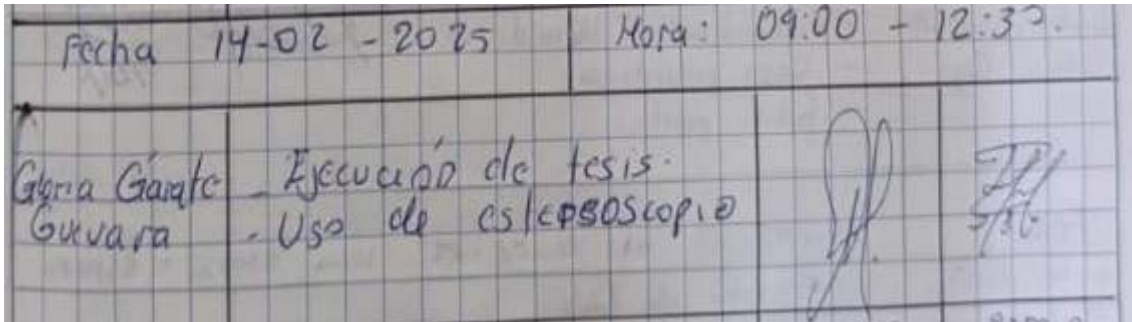 Fecha 14-02-2025 Hora: 09:00 - 12:30.
Gloria Gárate - Ejecución de tesis.
Guevara - Uso de estereoscopio